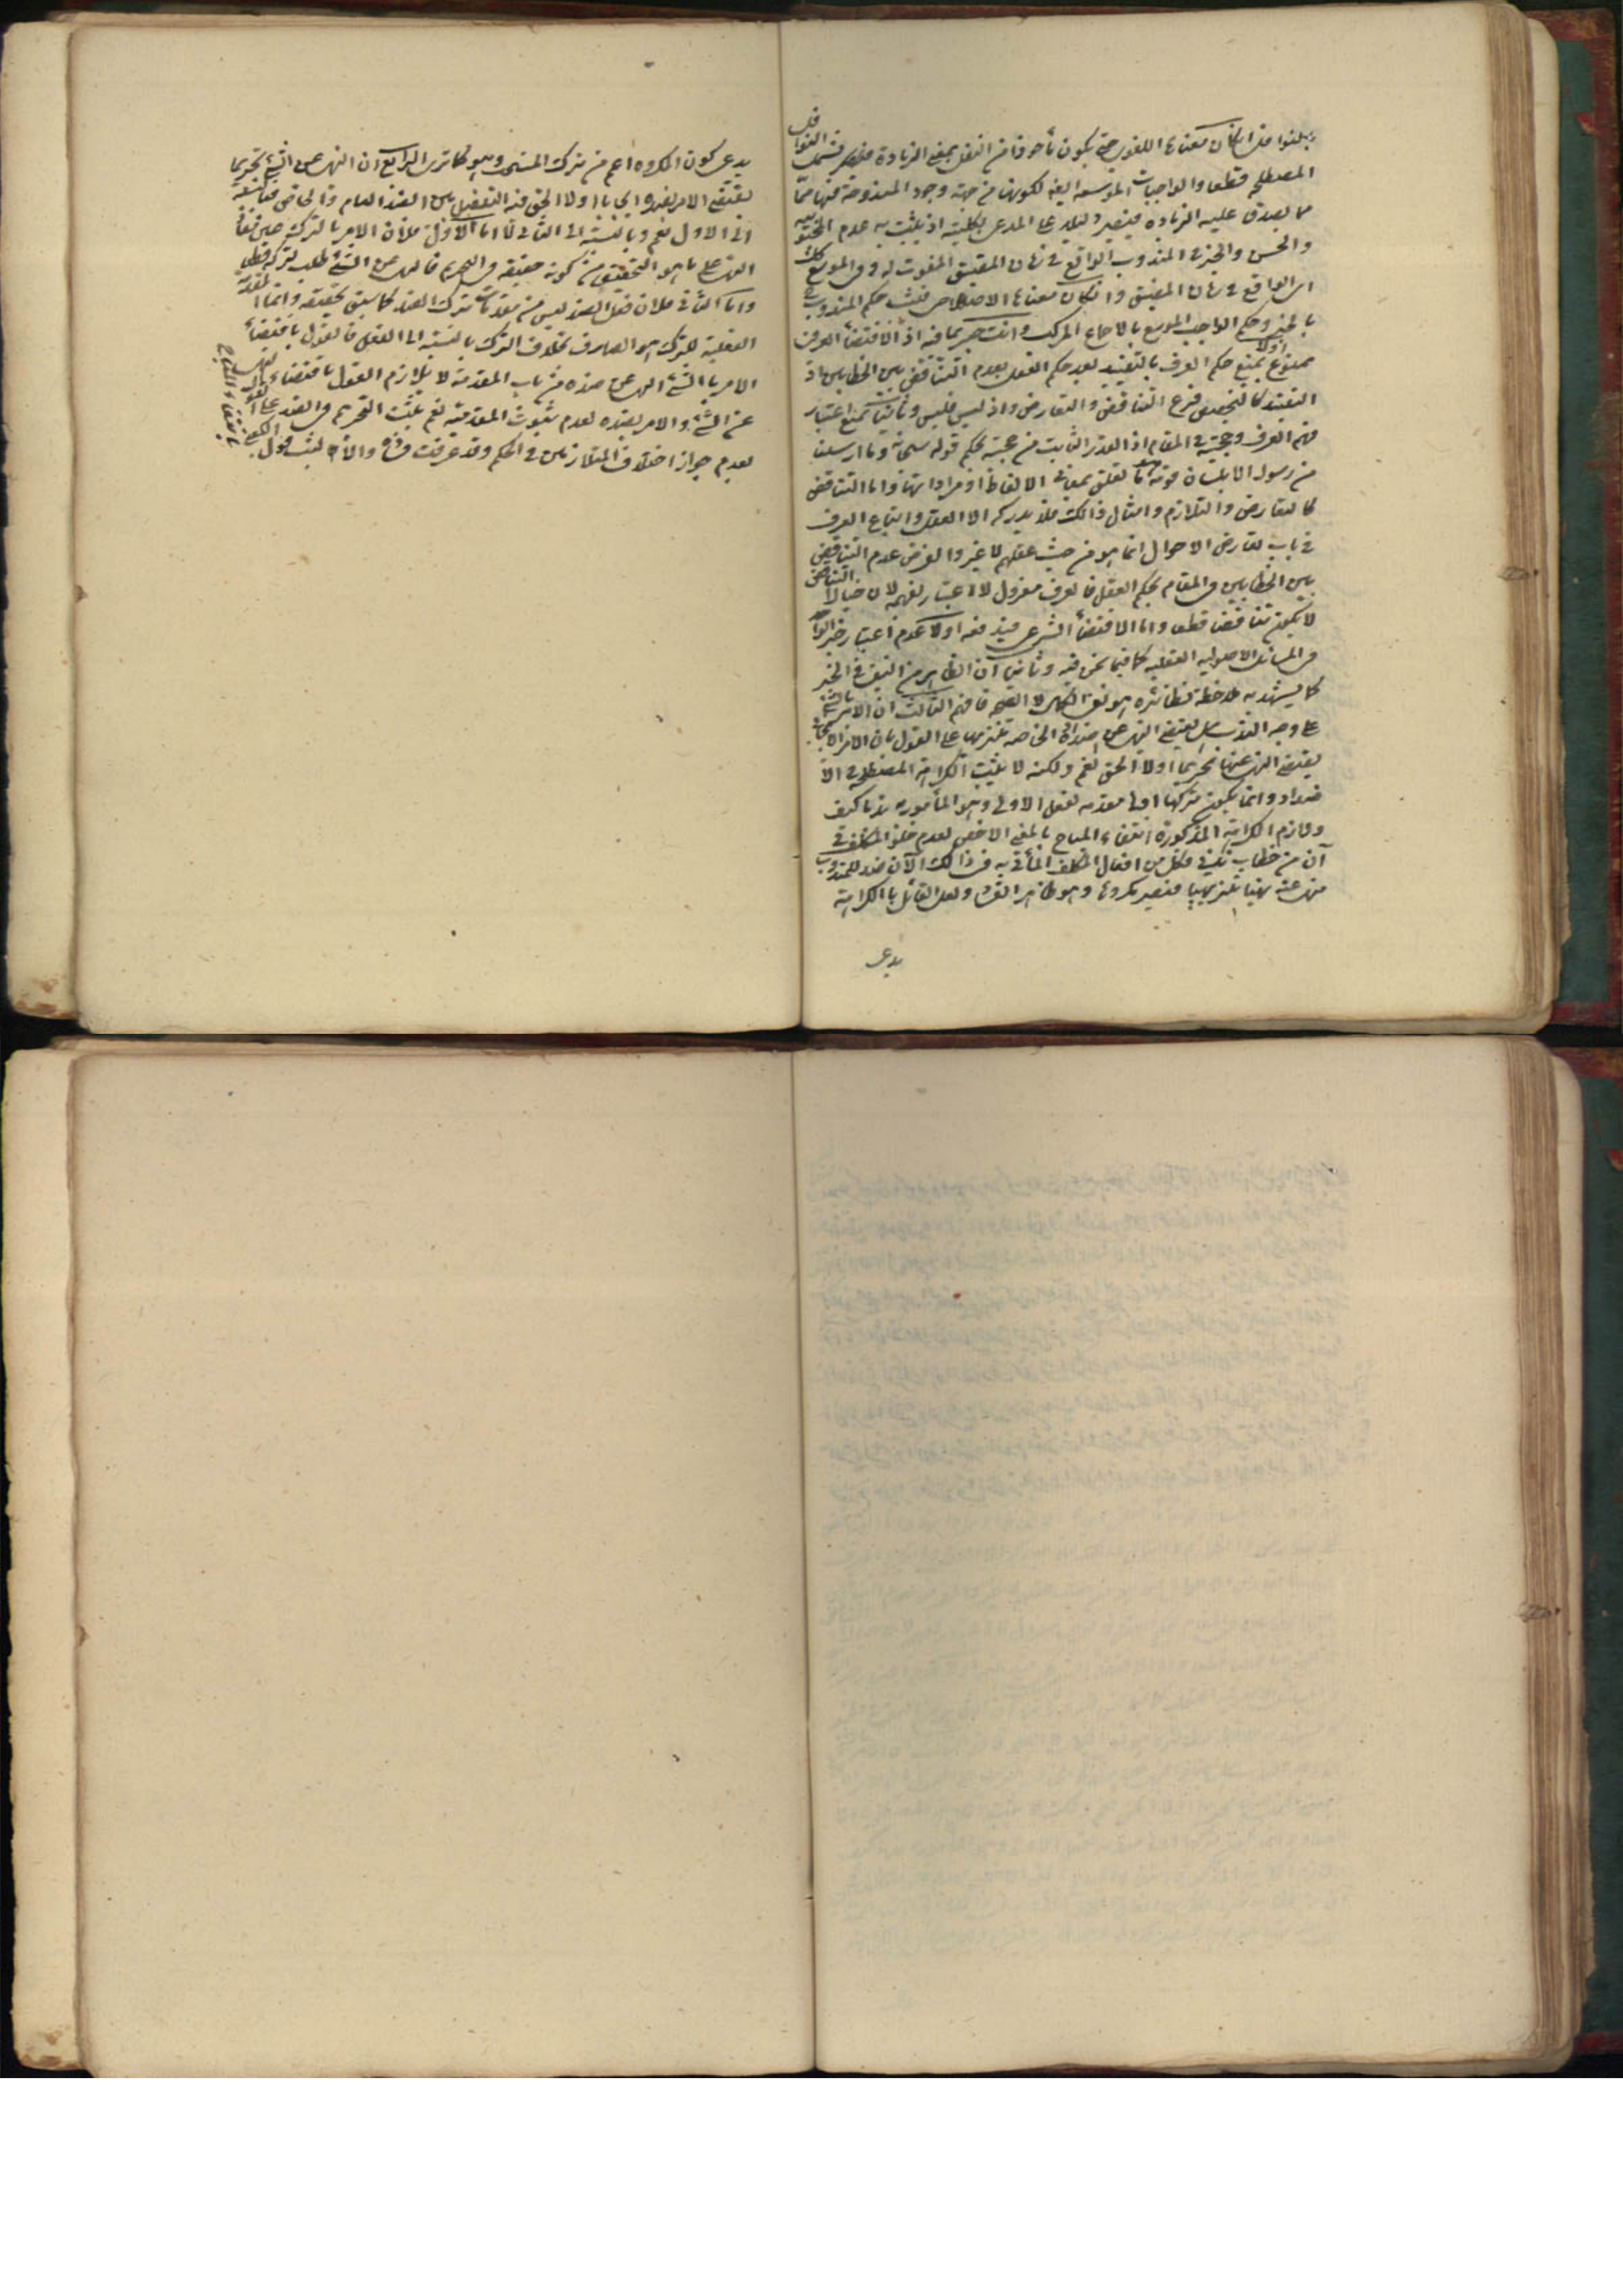 يبلغوا فان كان معناها اللغوى حتى يكون مأخوذا من النفل بمعنى الزيادة فتسمى النوافل
المصطلحة قطعا والواجبات الموسعة ايضا لكونها من جهة وجود المندوحة منها مما
مما يصدق عليه الزيادة فيصير دليلا على المدعى بكليته اذ يثبت به عدم
والحسن والخبز فى المندوب الواقع فى زمان المضيق المفوت له وفى الموسع كك
اى الواقع فى زمان المضيق وان كان معناها الاصطلاحى فيثبت حكم المندوب فى
بالخبر وحكم الواجب الموسع بالاجماع المركب وانت خبير بما فيه اذ الاقتضاء العرفى
ممنوع اولا بمنع حكم العرف بالتقييد بعد حكم العقل بعدم التناقض بين الخطابين اذ
التقييد كالتخصيص فرع التناقض والتعارض واذ ليس فليس وثانيا بمنع اعتبار
فهم العرف وحجيته فى المقام اذ القدر الثابت من حجيته بحكم قوله سبحانه وما ارسلنا
من رسول الا بلسان قومه ما تعلق بمعانى الالفاظ او مراداتها واما التناقض
كالتعارض والتلازم وامثال ذالك فلا يدركه الا العقل واتباع العرف
فى باب تعارض الاحوال انما هو من حيث عقلهم لا غير والفرض عدم التناقض
بين الخطابين فى المقام بحكم العقل فالعرف معزول لا اعتبار بفهمه لان خيال التناقض
لا يكون تناقضا قطعا واما الاقتضاء الشرعى فيدفعه اولا عدم اعتبار خبر الواحد
فى المسائل الاصولية العقلية كما فيما نحن فيه وثانيا ان الظاهر من النفى فى الخبر
كما يشهد به ملاحظة نظائره هو نفى الكمال لا الصحة فافهم الثالث ان الامر بالشئ
على وجه الندب هل يقتضى النهى عن اضداده الخاصة تنزيها على القول بان الامر الايجابى
يقتضى النهى عنها تحريما اولا الحق نعم ولكنه لا يثبت الكراهة المصطلحة فى الا
ضداد وانما يكون تركها اولى مقدمة لفعل الاولى وهو المأمور به ندبا كيف
ولازم الكراهة المذكورة انتفاء المباح بالمعنى الاخص لعدم خلو المكلف فى
آن من خطاب ندبى فكل من افعال المكلف المأتى به فى ذالك الآن ضد للمندوب
منهى عنه نهيا تنزيهيا فيصير مكروها وهو ظاهر الفساد ولعل القائل بالكراهة
يدعى
يدعى كون المكروه اعم من ترك المستحب وهو كما ترى الرابع ان النهى عن الشئ تحريما
يقتضى الامر بضده ايجابا اولا الحق فيه التفصيل بين الضد العام والخاص
الى الاول نعم وبالنسبة الى الثانى لا اما الاول فلان الامر بالترك عين
النهى على ما هو التحقيق من كونه حقيقة فى التحريم فالنهى عن الشئ طلب لتركه قطعا
واما الثانى فلان فعل الضد ليس من مقدمات ترك الضد كما سبق تحقيقه وانما
الفعلية للترك هو الصارف بخلاف الترك بالنسبة الى الفعل فالقول باقتضاء
الامر بالشئ النهى عن ضده من باب المقدمة لا يلازم القول باقتضاء النهى
عن الشئ والامر بضده لعدم ثبوت المقدمية نعم يثبت التحريم فى الضد على
لعدم جواز اختلاف المتلازمين فى الحكم وقد عرفت فساده